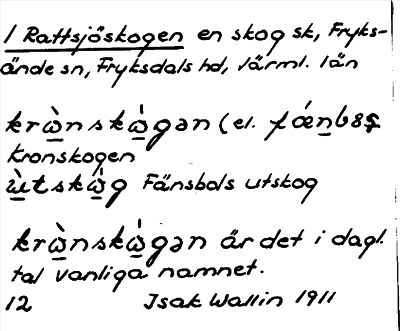 1 Rattsjöskogen en skog sk, Fryks-
ände sn, Fryksdals hd, Värml. län
krὼ̲nskω̲̇gən (el.
Kronskogen
ὼ̲tskω̲̇g Fänsbols utskog
krὼ̲nskω̲̇gən är det i dagl.
tal vanliga namnet.
12 Isak Wallin 1911